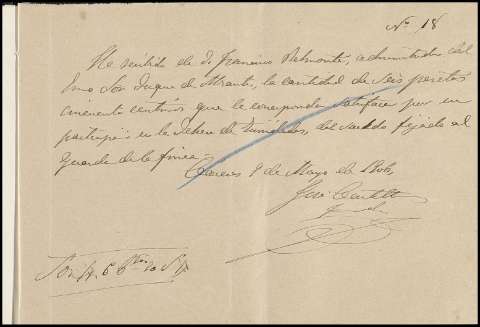 Nº 18
He recibido de D. Francisco Belmonte, administrador del
Exmo Sor Duque de Abrantes, la cantidad de seis pesetas
cincuenta centimos que le corresponde satisfacer por su
participn en la Dehesa de del sueldo fijado al
guarda de la finca=
Caceres 9 de Mayo de
José
Son ptas 6 50